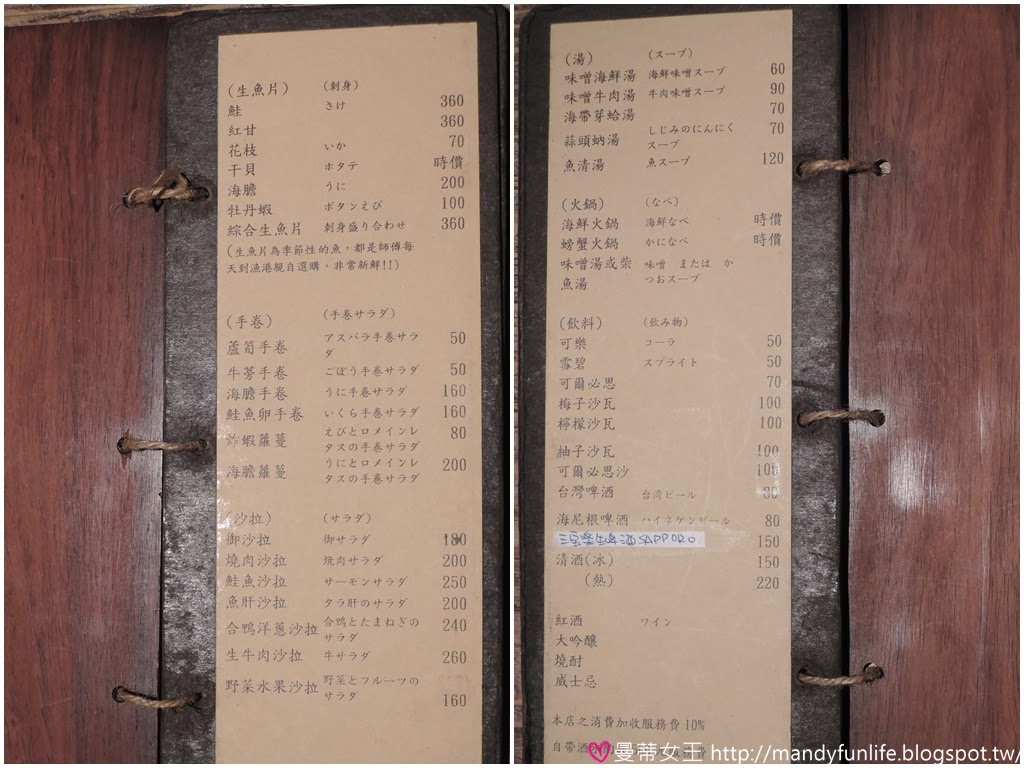 (生魚片) (刺身)
鮭 さけ 360
紅甘 360
花枝 いか 70
干貝 ホタテ 時價
海膽 うに 200
牡丹蝦 ボタンえび 100
綜合生魚片 刺身盛り合わせ 360
(生魚片為季節性的魚，都是師傅每
天到漁港親自選購，非常新鮮!!)
(手巻) (手巻サラダ)
蘆筍手巻 アスパラ手巻サラ
ダ 50
牛蒡手巻 ごぼう手巻サラダ 50
海膽手巻 うに手巻サラダ 160
鮭魚卵手巻 いくら手巻サラダ 160
炸蝦蘿蔓 えびとロメインレ
タスの手巻サラダ 80
海膽蘿蔓 うにとロメインレ
タスの手巻サラダ 200
(沙拉) (サラダ)
御沙拉 御サラダ 180
燒肉沙拉 焼肉サラダ 200
鮭魚沙拉 サーモンサラダ 250
魚肝沙拉 タラ肝のサラダ 200
合鴨洋蔥沙拉 合鴨とたまねぎの
サラダ 240
生牛肉沙拉 牛サラダ 260
野菜水果沙拉 野菜とフルーツの
サラダ 160
(湯) (スープ)
味噌海鮮湯 海鮮味噌スープ 60
味噌牛肉湯 牛肉味噌スープ 90
海帶芽蛤湯 70
蒜頭蚋湯 しじみのにんにく
スープ 70
魚清湯 魚スープ 120
(火鍋) (なべ)
海鮮火鍋 海鮮なべ 時價
螃蟹火鍋 かになべ 時價
味噌湯或柴 味噌 または か
魚湯 つおスープ
(飲料) (飲み物)
可樂 コーラ 50
雪碧 スプライト 50
可爾必思 70
梅子沙瓦 100
檸檬沙瓦 100
柚子沙瓦 100
可爾必思沙 100
台灣啤酒 台湾ビール 80
海尼根啤酒 ハイネケンビール 80
三宝樂生啤酒 SAPPORO 150
清酒(冰) 150
(熱) 220
紅酒 ワイン
大吟釀
燒酎
威士忌
本店之消費加收服務費10%
自帶酒
曼蒂女王 http://mandyfunlife.blogspot.tw/